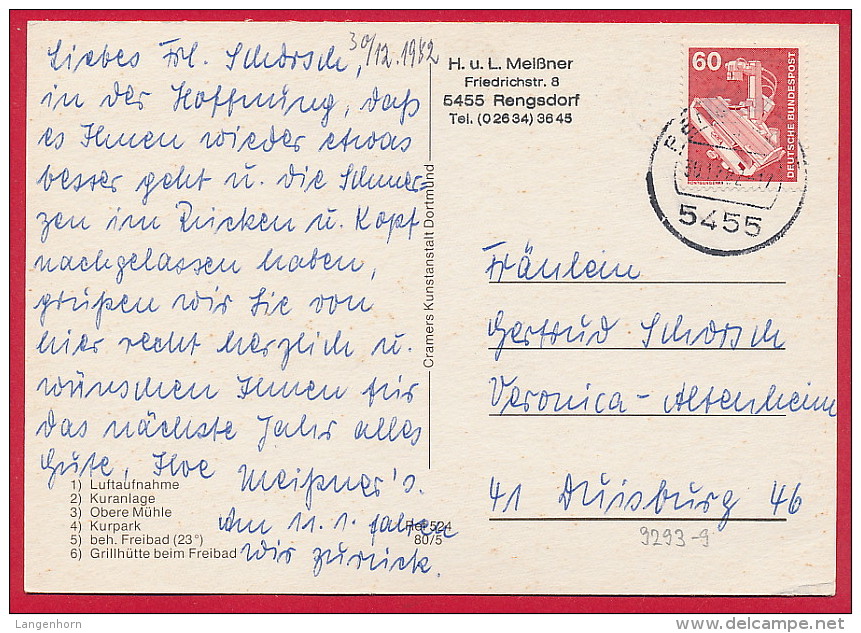 30/12.1982
Liebes Frl. Schorsch,
in der Hoffnung, daß
es Ihnen wieder etwas
besser geht u. die Schmer-
zen im Rücken u. Kopf
nachgelassen haben,
grüßen wir Sie von
hier recht herzlich u.
wünschen Ihnen für
das nächste Jahr alles
Gute, Ihre Meißner's.
Am 11.1. fahren
wir zurück.
1) Luftaufnahme
2) Kuranlage
3) Obere Mühle
4) Kurpark
5) beh. Freibad (23°)
6) Grillhütte beim Freibad
524
80/5
Cramers Kunstanstalt Dortmund
H. u. L. Meißner
Friedrichstr. 8
5455 Rengsdorf
Tel. (02634) 3645
60
DEUTSCHE BUNDESPOST
5455
Fräulein
Gertrud Schorsch
Veronica-Altenheim
41 Duisburg 46
9293-9
Langenhorn
delcampe.net